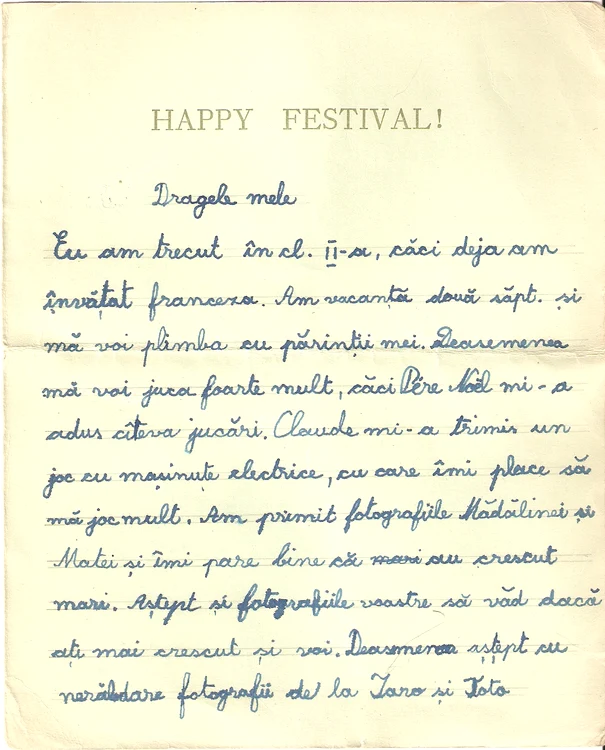 HAPPY FESTIVAL!
Dragele mele
Eu am trecut în cl. II-a, căci deja am
învățat franceza. Am vacanță două săpt. și
mă voi plimba cu părinții mei. Deasemenea
mă voi juca foarte mult, căci Père Noël mi-a
adus cîteva jucări. Claude mi-a trimis un
joc cu mașinuțe electrice, cu care îmi place să
mă joc mult. Am primit fotografiile Mădălinei și
Matei și îmi pare bine că mari au crescut
mari. Aștept și fotografiile voastre să văd dacă
ați mai crescut și voi. Deasemenea aștept cu
nerăbdare fotografii de la Taro și Toto